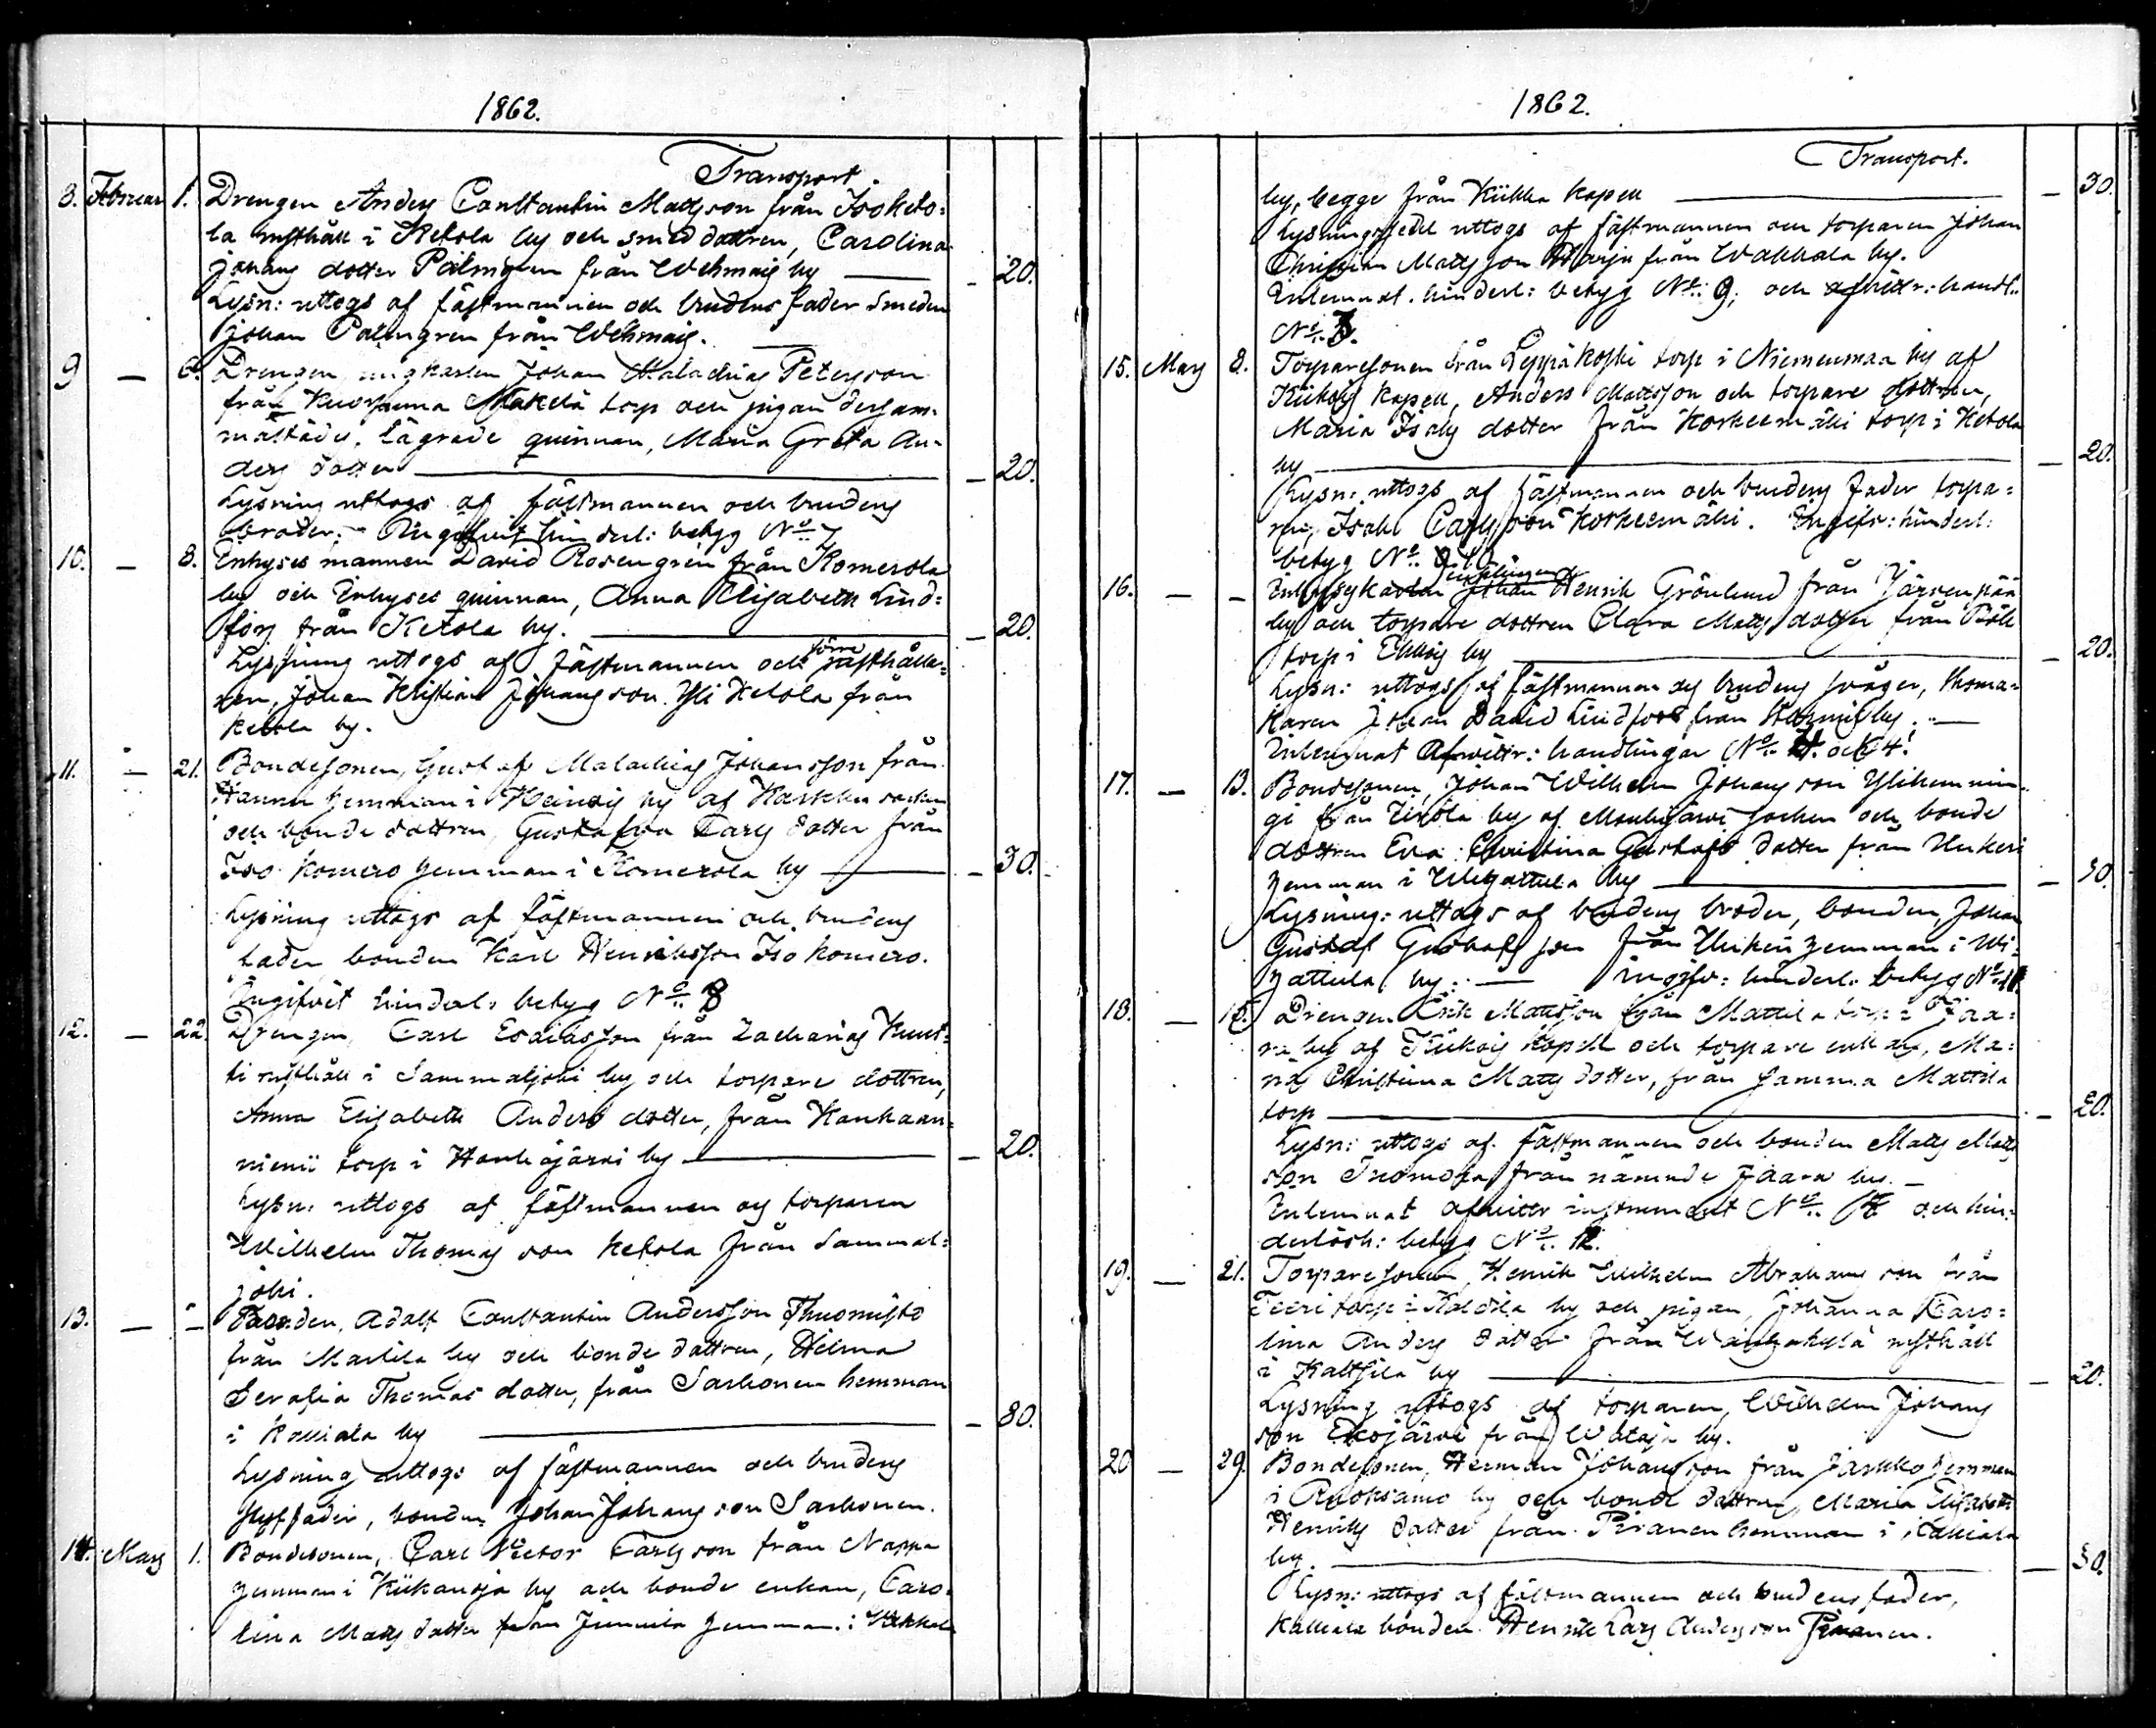 1862.
Transport.
8. Februar 1. Drengen Anders Constantin Mattsson från Isoketo-
la rusthåll i Ketola by och smeddottren, Carolina
Johans dotter Palmgren från Wehmais by — 20.
Lysn: uttogs af fästmannen och brudens fader Smeden
Johan Palmgren från Wehmais.
9 — 6. Drengen, ungkarlen Johan Malachias Petersson
från Makelä torp och pigan dersam-
mastädes, lägrade quinnan, Maria Greta An-
ders dotter — 20.
Lysning uttogs af fästmannen och brudens
broder. — hinderl: betyg No 7
10. — 8. Inhyses mannen David Rosengrén från Komerola
by och Inhyses quinnan, Anna Elisabeth Lind-
fors från Ketola by. — 20.
Lysning uttogs af fästmannen och förre rusthålla-
ren, Johan Kristian Johansson Yli Ketola från
Ketola by.
11. — 21. Bondesonen, Gustaf Malachias Johansson från
Hannu hemman i by af Karkku socken
och bonde dottren, Gustafva Carls dotter från
Iso Komero hemman i Komerola by — 30.
Lysning uttogs af fästmannen och brudens
fader bonden Karl Henriksson Iso Komero.
Ingifvit hinderl: betyg No 8
12. — 22. Drengen, Carl Esaiasson från Zacharias Kunt-
ti rusthåll i Sammaljoki by och torpare dottren,
Anna Elisabeth Anders dotter, från Kankaan-
niemi torp i Houhajärvi by — 20.
Lysn: uttogs af fästmannen og torparen
Wilhelm Thomas son Ketola från Sammal-
joki.
13. — — Bonden, Adolf Constantin Andersson Thuomisto
från Martila by och bonde dottren, Hilma
Serafia Thomas dotter, från Sarkonen hemman
i Kalliala by — 80.
Lysning uttogs af fästmannen och brudens
styffader, bonden Johan Johans son Sarkonen.
14. Mars 1. Bondesonen, Carl Victor Carls son från Nappa
hemman i Kiikanoja by och bonde enkan, Caro-
lina Matts dotter från Junnila hemman i
1862.
Transport.
by, begge från Kiikka kapell — 30.
Lysningssedel uttogs af fästmannen och torparen Johan
Christian Mattsson Harju från Wakkala by.
Inlemnat. hinderl: betyg No: 9; och afvittr: handl:
No 3.
15. Mars 8. Torparesonen från Leppäkoski torp i Niemenmaa by af
Kiikois kapell, Anders Mattsson och torpare dottren,
Maria Isaks dotter från Korkeemäki torp i Ketola
by — 20.
Lysn: uttogs af fästmannen och brudens fader torpa-
ren, Isak Carlsson Korkeemäki. Ingifv: hinderl:
betyg No 10.
16. — — Henrik Grönlund från Järvenpää
by och torpare dottren Clara Matts dotter från
torp i Ekkois by — 20.
Lysn: uttogs af fästmannen og brudens svåger, skoma-
karen Johan David Lindfors från by. —
Inlemnat Afvittr: handlingar No och 4.
17. — 13. Bondesonen, Johan Wilhelm Johans son Ylihemmin-
gi från by af Mouhijärvi socken och bonde
dottren Eva Christina Gustafs dotter från Unkeri
hemman i by — 30.
Lysning: uttogs af brudens broder, bonden, Johan
Gustaf Gustafs son från Unkeri hemman i Wi-
hattula by. — ingifv: hinderl: betyg No 11.
18. — 15. Drengen Erik Mattsson från Mattila torp i Jaa-
ra by af Kiikois kapell och torpare enkan, Ma-
ria Christina Matts dotter, från samma Mattila
torp — 20.
Lysn: uttogs af fästmannen och bonden Matts Matts
son Tuomola från nämnde Jaara by. —
Inlemnat afvitter instrument No och hin-
derlösh: betyg No 12.
19. — 21. Torparesonen, Henrik Wilhelm Abrahams son från
Teeri torp i Kaltsila by och pigan, Johanna Caro-
lina Anders dotter från Wanhakylä rusthåll
i Kaltsila by — 20.
Lysning uttogs af torparen, Wilhelm Johans
son Ekojärvi från Wataja by.
20 — 29. Bondesonen, Herman Johansson från Jaakko hemman
i Ruoksamo by och bonde dottren, Maria Elisabeth
Henriks dotter från Piranen hemman i Kalliala
by. — 30.
Lysn: uttogs af fästmannen och brudens fader,
Kalliala bonden Henrik Lars Andersson Piranen.